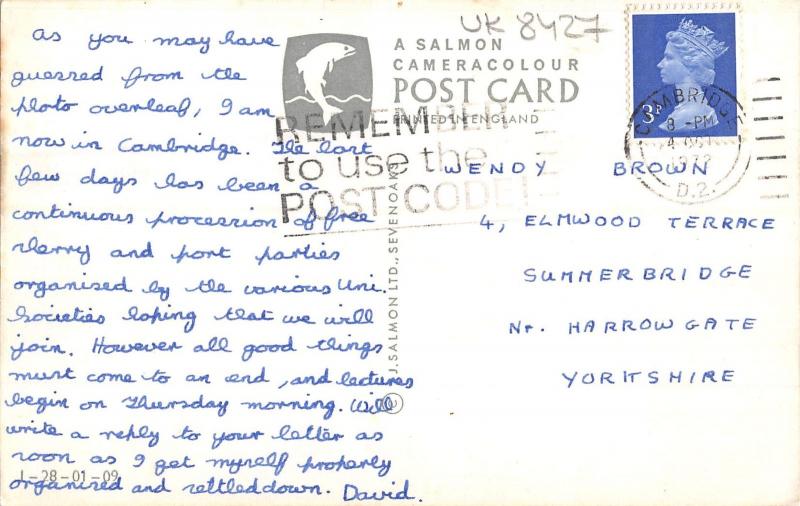 As you may have
guessed from the
photo overleaf, I am
now in Cambridge. The last
few days has been a
continuous procession of free
sherry and port parties
organised by the various Uni.
Societies hoping that we will
join. However all good things
must come to an end, and lectures
begin on Thursday morning. Will
write a reply to your letter as
soon as I get myself properly
organised and settled down. David.
1-28-01-09
UK 8427
A SALMON
CAMERACOLOUR
POST CARD
PRINTED IN ENGLAND
REMEMBER
to use the
POST CODE!
© J. SALMON LTD., SEVENOAKS
3P
CAMBRIDGE
8 - PM
4 OCT
1972
D.2.
WENDY BROWN
4, ELMWOOD TERRACE
SUMMERBRIDGE
Nr. HARROWGATE
YORKSHIRE